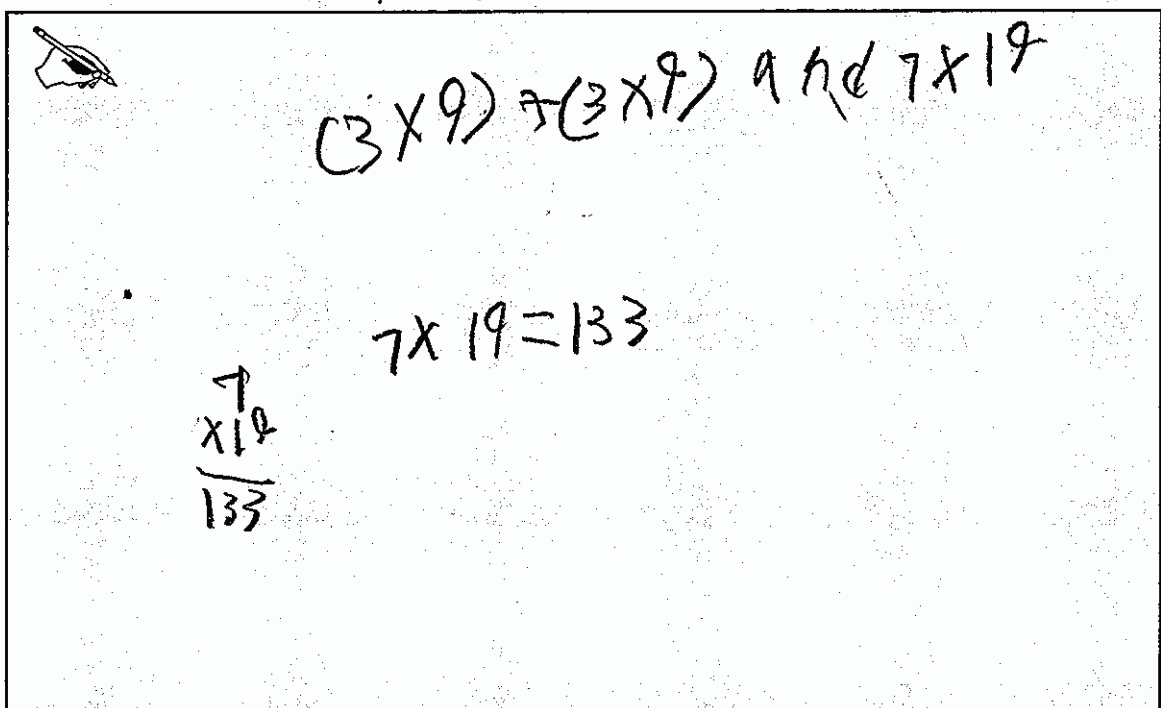 (3×9)+(3×9) and 7×19
7×19=133
7
×19
133